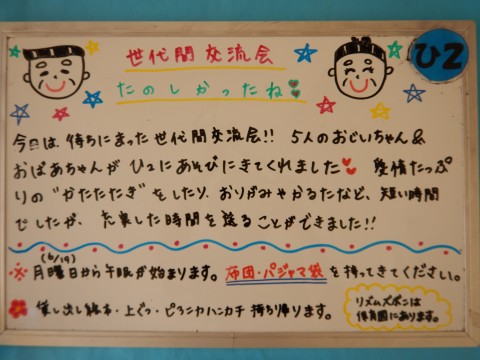 世代間交流会
ひ2
たのしかったね
今日は、待ちにまった世代間交流会!! 5人のおじいちゃん&
おばあちゃんがひ2にあそびにきてくれました 愛情たっぷ
りの"かたたたき"をしたり、おりがみやかるたなど、短い時間
でしたが、充実した時間を送ることができました!!
(6/19)
※月曜日から午眠が始まります。布団・パジャマ袋を持ってきてください。
貸し出し絵本・上ぐつ・ピクニックハンカチ持ち帰ります。
リズムズボンは
保育園にあります。